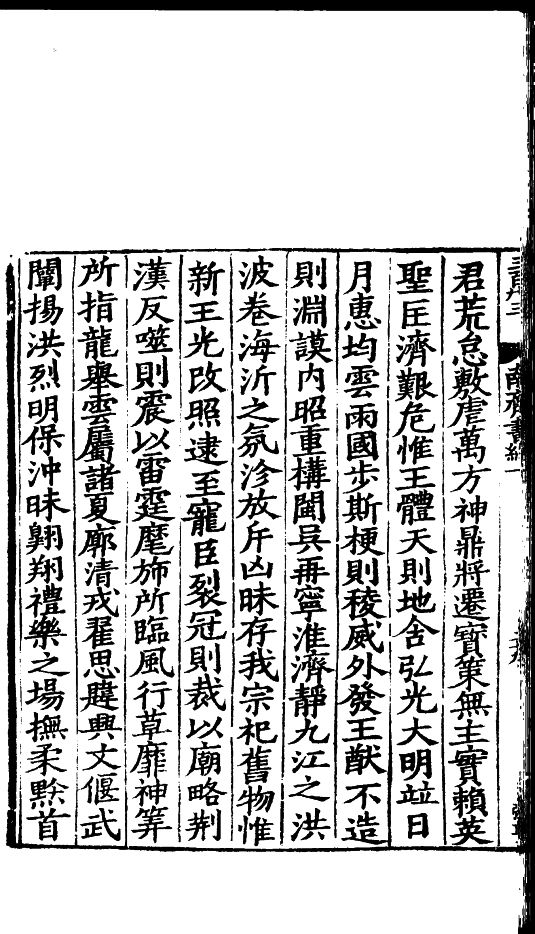 君荒怠敷虐萬方神鼎將遷寳策無主實賴英
聖匡濟艱危惟王體天則地含弘光大明竝日
月惠均雲雨國步斯梗則稜威外發王猷不造
則淵謨内昭重構閩吳再寧淮濟靜九江之洪
波卷海沂之氛沴放斥凶昧存我宗祀舊物惟
新王光改照逮至寵臣裂冠則裁以廟略荆
漢反噬則震以雷霆麾斾所臨風行草靡神筭
所指龍舉雲屬諸夏廓清戎翟思韙興文偃武
闡揚洪烈明保沖昧翱翔禮樂之場撫柔黔首